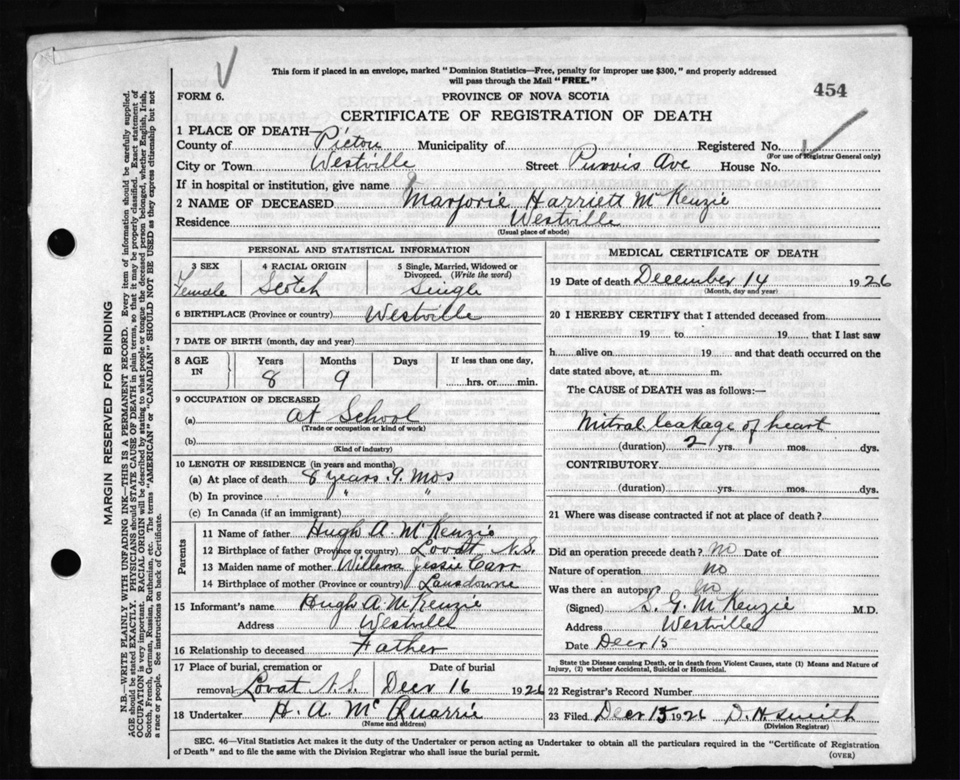 This form if placed in an envelope, marked "Dominion Statistics—Free, penalty for improper use $300," and properly addressed
will pass through the Mail "FREE."
454
FORM 6.
PROVINCE OF NOVA SCOTIA
CERTIFICATE OF REGISTRATION OF DEATH
1 PLACE OF DEATH
County of Pictou Municipality of Registered No.
(For use of Registrar General only)
City or Town Westville Street Purvis Ave House No.
If in hospital or institution, give name
2 NAME OF DECEASED Marjorie Harriett McKenzie
Residence Westville
(Usual place of abode)
PERSONAL AND STATISTICAL INFORMATION
3 SEX 4 RACIAL ORIGIN 5 Single, Married, Widowed or
Divorced. (Write the word)
Female Scotch Single
6 BIRTHPLACE (Province or country) Westville
7 DATE OF BIRTH (month, day and year)
8 AGE IN Years Months Days If less than one day,
8 9 hrs. or min.
9 OCCUPATION OF DECEASED
(a) At School
(Trade or occupation or kind of work)
(b)
(Kind of industry)
10 LENGTH OF RESIDENCE (in years and months)
(a) At place of death 8 years. 9. Mos
(b) In province " "
(c) In Canada (if an immigrant)
Parents
11 Name of father Hugh A. McKenzie
12 Birthplace of father (Province or country) Lovat N.S.
13 Maiden name of mother Willena Jessie Carr
14 Birthplace of mother (Province or country) Lansdowne
15 Informant's name Hugh A. McKenzie
Address Westville
16 Relationship to deceased Father
17 Place of burial, cremation or Date of burial
removal Lovat N.S. Decr 16 1926
18 Undertaker H. A. McQuarrie
(Name and address)
MEDICAL CERTIFICATE OF DEATH
19 Date of death December 14 1926
(Month, day and year)
20 I HEREBY CERTIFY that I attended deceased from
19 to 19 that I last saw
h alive on 19 and that death occurred on the
date stated above, at m.
The CAUSE of DEATH was as follows:—
Mitral leakage of heart
(duration) 2 yrs. mos. dys.
CONTRIBUTORY
(duration) yrs. mos. dys.
21 Where was disease contracted if not at place of death?
Did an operation precede death? no Date of
Nature of operation no
Was there an autopsy? no
(Signed) S. G. McKenzie M.D.
Address Westville
Date Decr 15
State the Disease causing Death, or in death from Violent Causes, state (1) Means and Nature of
Injury, (2) whether Accidental, Suicidal or Homicidal.
22 Registrar's Record Number
23 Filed Decr 15 1926 D. H. Smith
(Division Registrar)
SEC. 46—Vital Statistics Act makes it the duty of the Undertaker or person acting as Undertaker to obtain all the particulars required in the "Certificate of Registration
of Death" and to file the same with the Division Registrar who shall issue the burial permit.
(OVER)
MARGIN RESERVED FOR BINDING
N.B.—WRITE PLAINLY WITH UNFADING INK—THIS IS A PERMANENT RECORD. Every item of information should be carefully supplied.
AGE should be stated EXACTLY. PHYSICIANS should STATE CAUSE OF DEATH in plain terms, so that it may be properly classified. Exact statement of
OCCUPATION is very important. RACIAL ORIGIN will be described by stating to what people or tongue the deceased person belonged, whether English, Irish,
Scotch, French, German, Russian, Ruthenian, etc. The terms "AMERICAN" or "CANADIAN" SHOULD NOT BE USED as they express citizenship but not
a race or people. See instructions on back of Certificate.